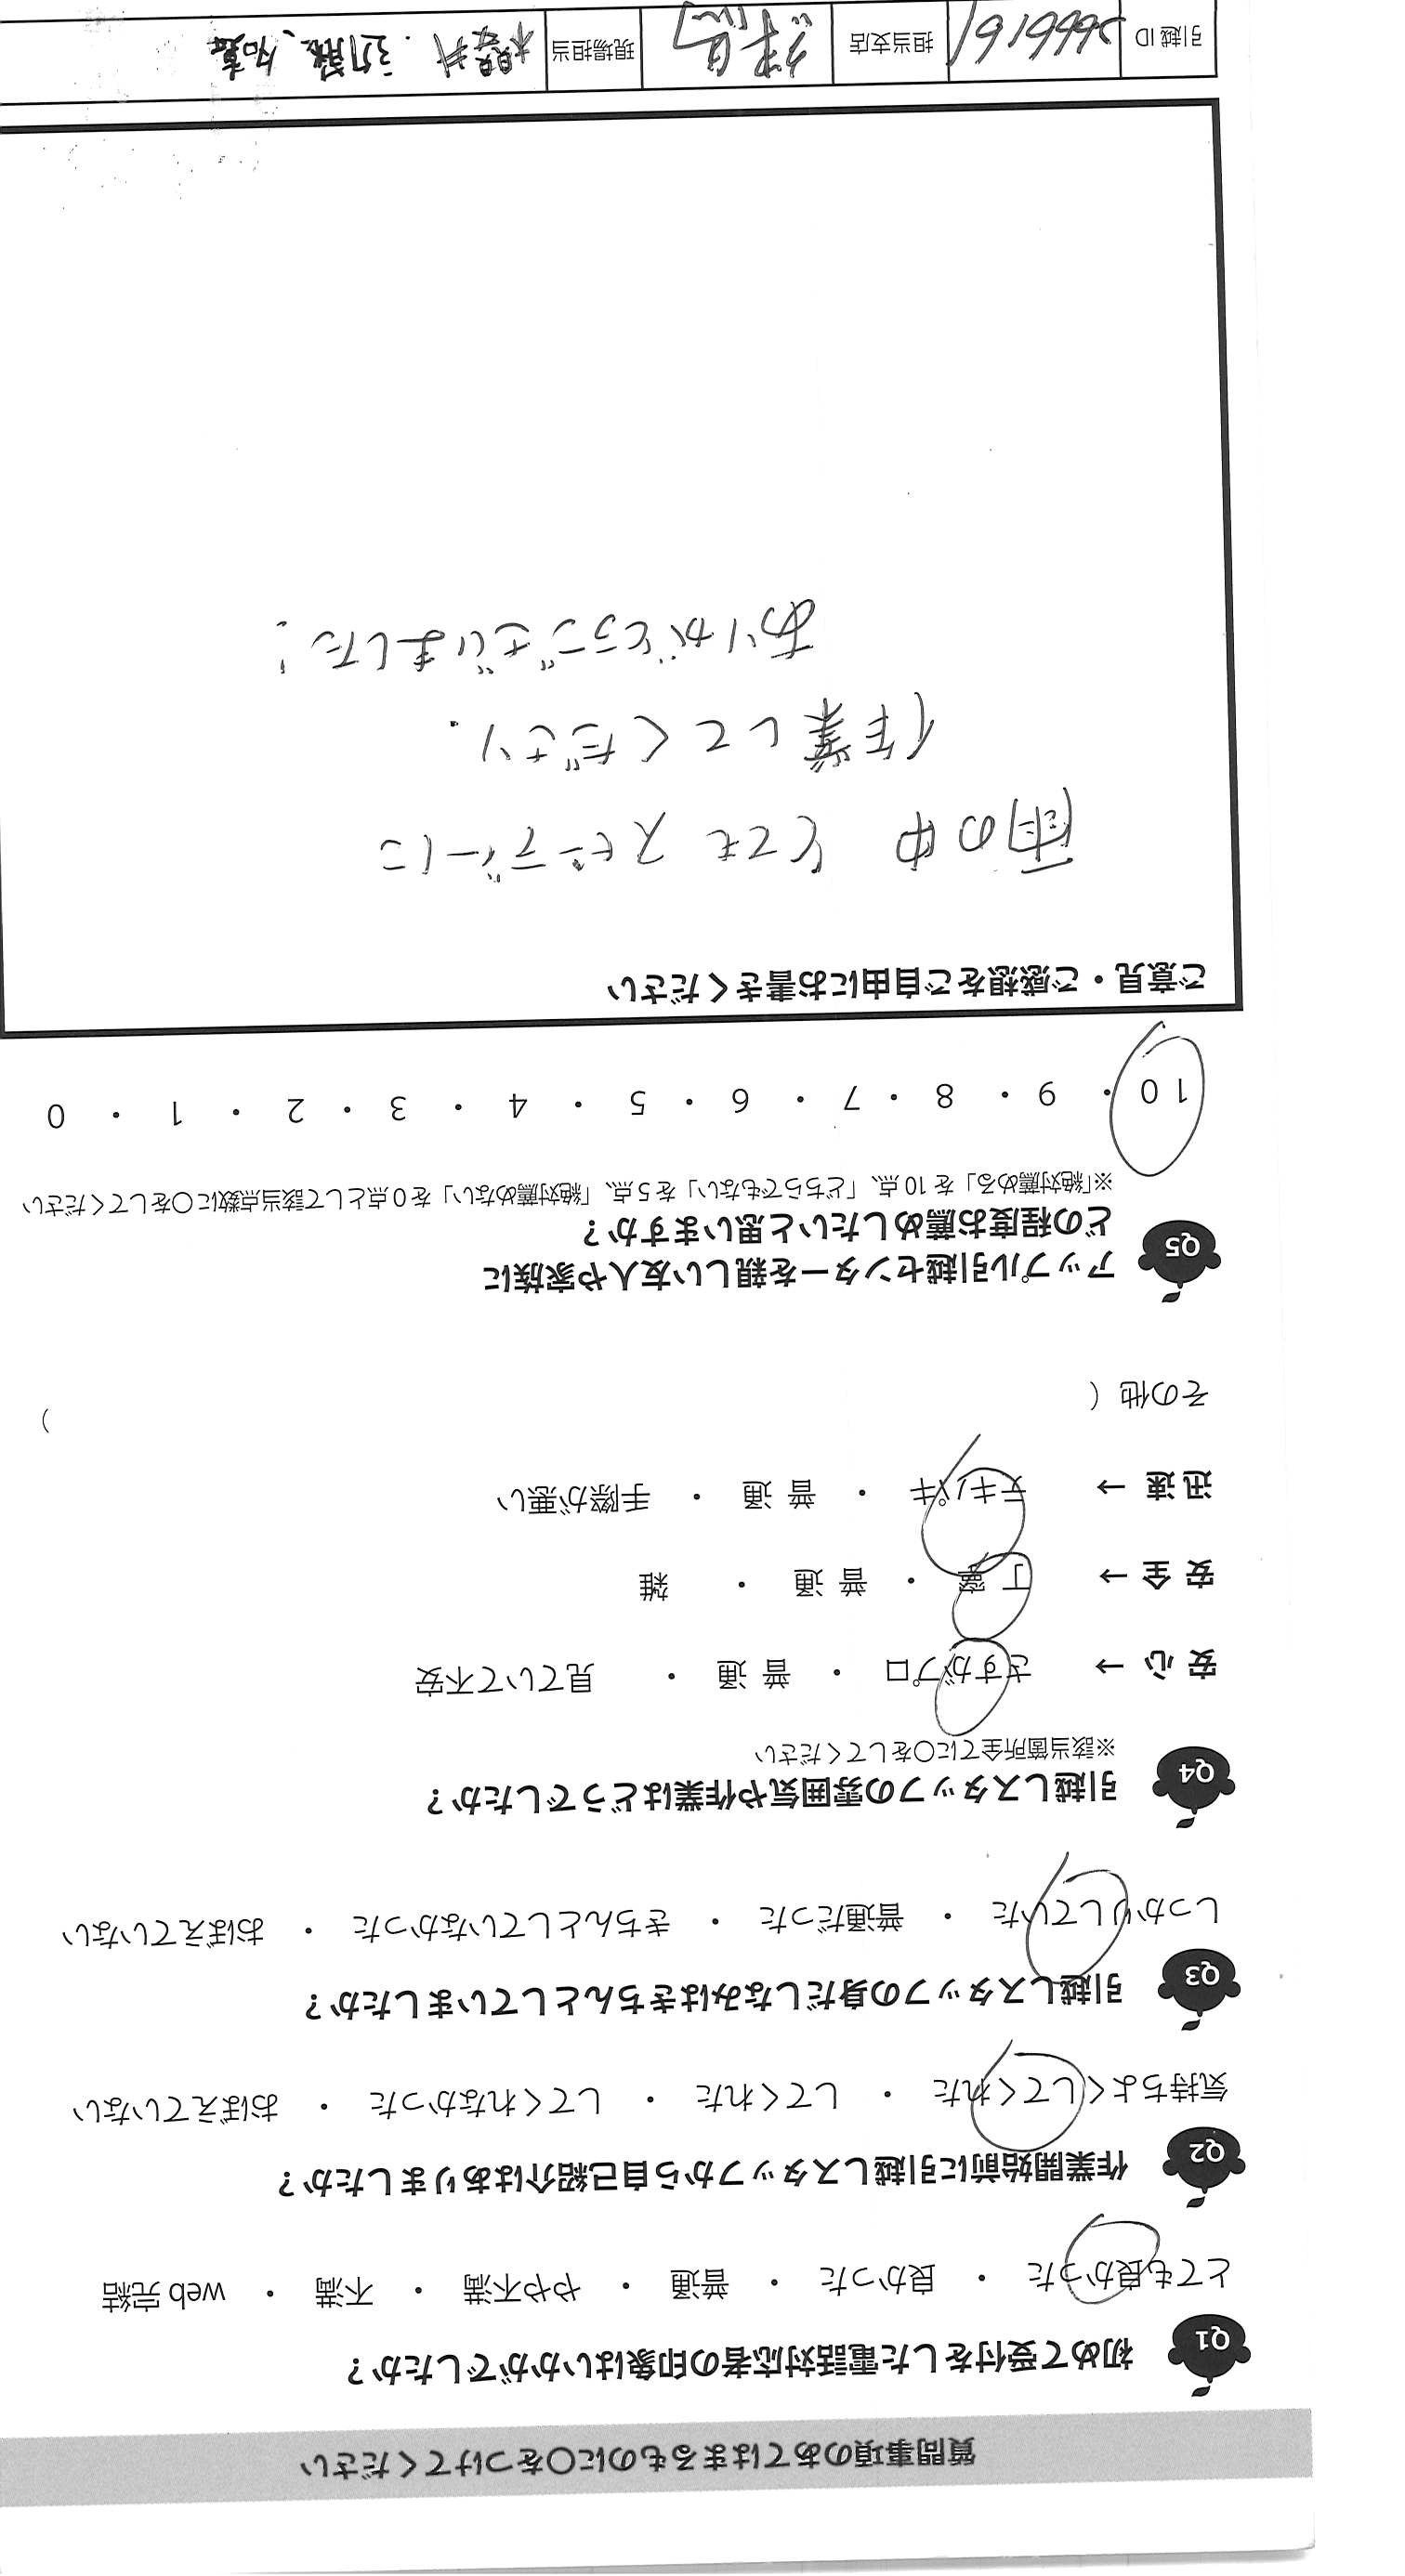 質問事項のあてはまるものに○をつけてください
Q1 初めて受付をした電話対応者の印象はいかがでしたか?
とても良かった ・ 良かった ・ 普通 ・ やや不満 ・ 不満 ・ web 完結
Q2 作業開始前に引越しスタッフから自己紹介はありましたか?
気持ちよくしてくれた ・ してくれた ・ してくれなかった ・ おぼえていない
Q3 引越しスタッフの身だしなみはきちんとしていましたか?
しっかりしていた ・ 普通だった ・ きちんとしていなかった ・ おぼえていない
Q4 引越しスタッフの雰囲気や作業はどうでしたか?
※該当箇所全てに○をしてください
安心 → さすがプロ ・ 普通 ・ 見ていて不安
安全 → 丁寧 ・ 普通 ・ 雑
迅速 → テキパキ ・ 普通 ・ 手際が悪い
その他 ( )
Q5 アップル引越センターを親しい友人や家族に
どの程度お薦めしたいと思いますか?
※「絶対薦める」を10点、「どちらでもない」を5点、「絶対薦めない」を0点として該当点数に○をしてください
10 ・ 9 ・ 8 ・ 7 ・ 6 ・ 5 ・ 4 ・ 3 ・ 2 ・ 1 ・ 0
ご意見・ご感想をご自由にお書きください
雨の中 とても スピーディーに
作業してくださり.
ありがとうございました!
引越ID 担当支店 現場担当 櫻井.